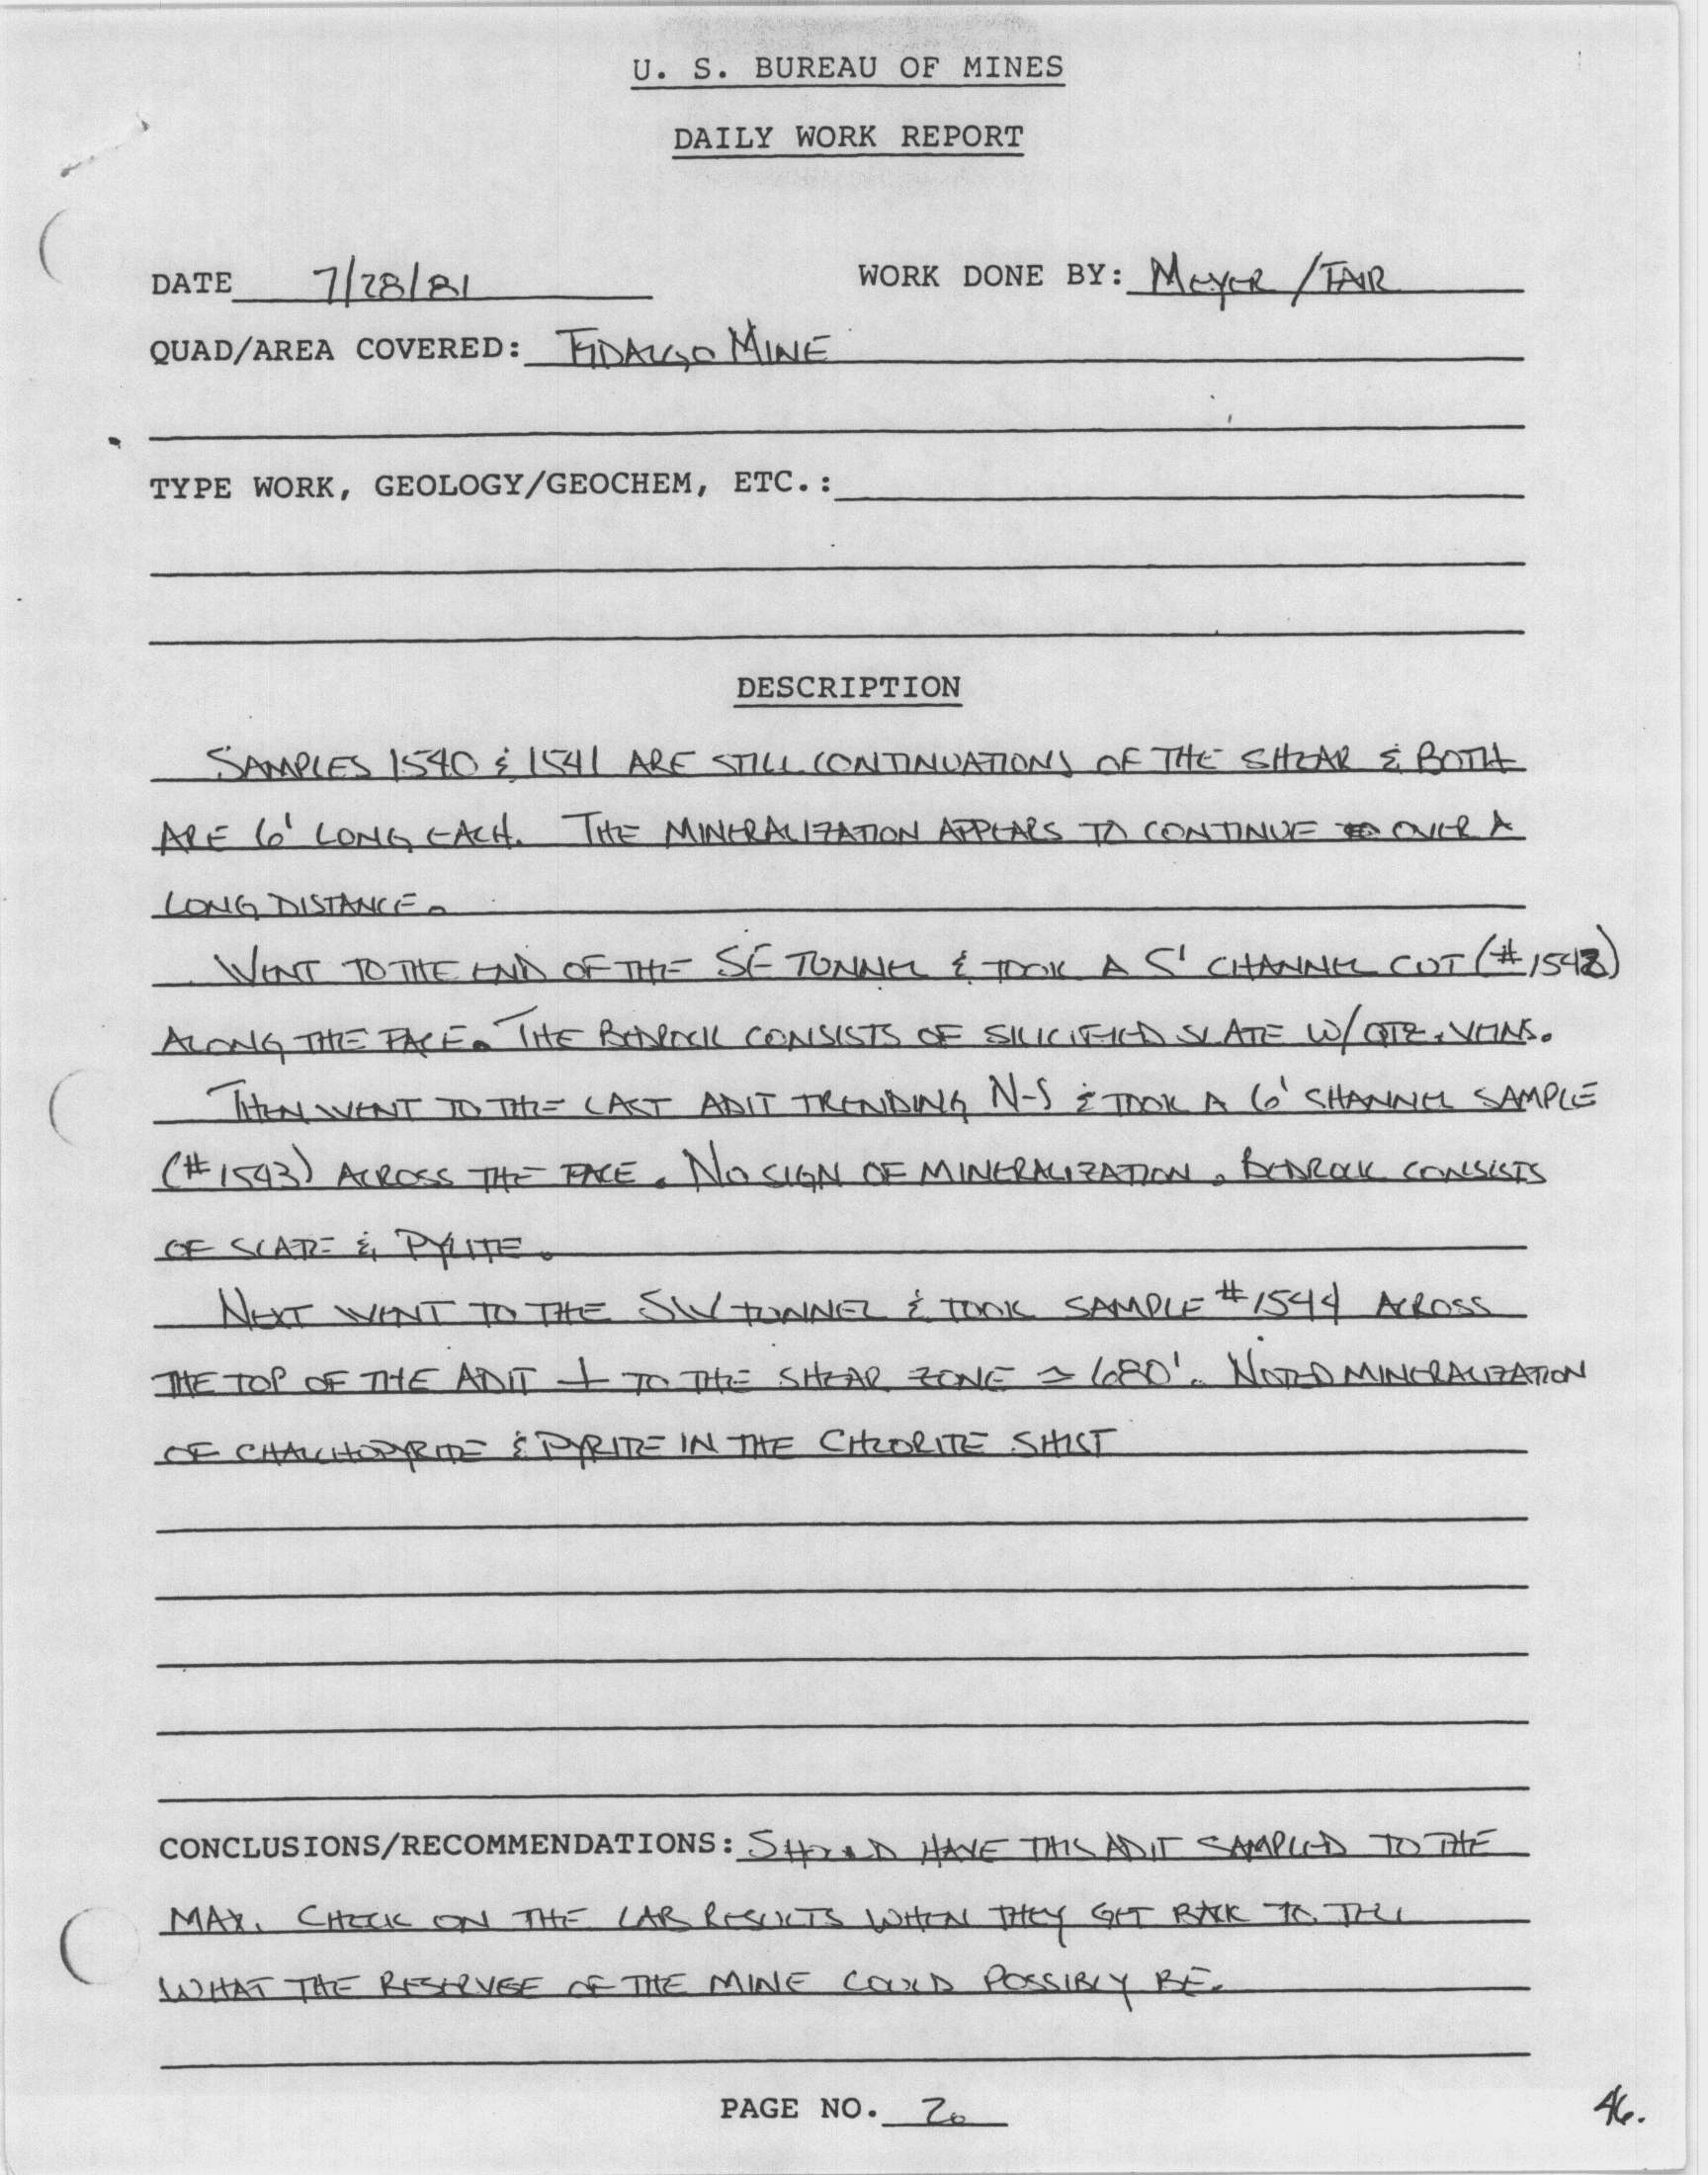 U. S. BUREAU OF MINES
DAILY WORK REPORT
DATE 7/28/81 WORK DONE BY: MEYER / FAIR
QUAD/AREA COVERED: FIDALGO MINE
TYPE WORK, GEOLOGY/GEOCHEM, ETC.:
DESCRIPTION
SAMPLES 1540 & 1541 ARE STILL CONTINUATIONS OF THE SHEAR & BOTH
ARE 6' LONG EACH. THE MINERALIZATION APPEARS TO CONTINUE OVER A
LONG DISTANCE.
WENT TO THE END OF THE SE TUNNEL & TOOK A 5' CHANNEL CUT (#1542)
ALONG THE FACE. THE BEDROCK CONSISTS OF SILICIFIED SLATE W/ QTZ. VEINS.
THEN WENT TO THE LAST ADIT TRENDING N-S & TOOK A 6' SHANNEL SAMPLE
(#1543) ACROSS THE FACE. NO SIGN OF MINERALIZATION. BEDROCK CONSISTS
OF SLATE & PYLITE.
NEXT WENT TO THE SW TUNNEL & TOOK SAMPLE #1544 ACROSS
THE TOP OF THE ADIT ⊥ TO THE SHEAR ZONE ≃ 680'. NOTED MINERALIZATION
OF CHALCHOPYRITE & PYRITE IN THE CHLORITE SHIST
CONCLUSIONS/RECOMMENDATIONS: SHOULD HAVE THIS ADIT SAMPLED TO THE
MAX. CHECK ON THE LAB RESULTS WHEN THEY GET BACK TO TELL
WHAT THE RESERVES OF THE MINE COULD POSSIBLY BE.
PAGE NO. 2
46.